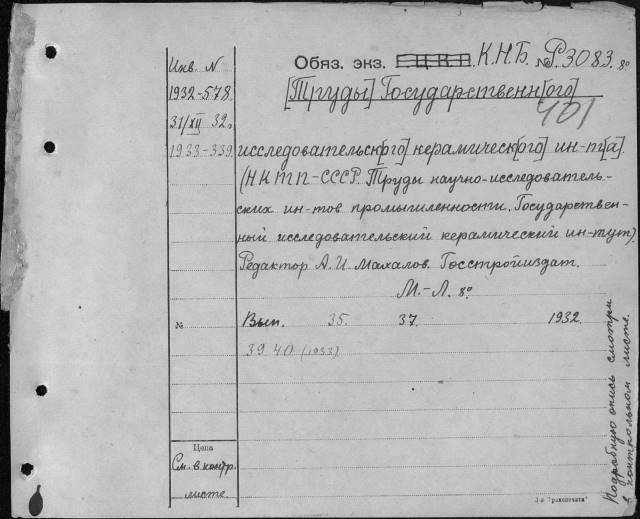 Обяз. экз. Г.Ц.К.П. К.Н.Б. № Р3083. 8º
Инв. N
1932-578
31/XII 32.
1933-339
[Труды] Государственн[ого]
401
исследовательск[ого] керамическ[ого] ин-т[а].
(НКТП-СССР. Труды научно-исследователь-
ских ин-тов промышленности. Государствен-
ный исследовательский керамический ин-тут).
Редактор А.И. Махалов. Госстройиздат.
М.-Л. 8º
№ Вып. 35. 37. 1932.
39. 40 (1933)
Цена
См. в контр.
листе.
Подробную опись смотри
в контрольном листе.